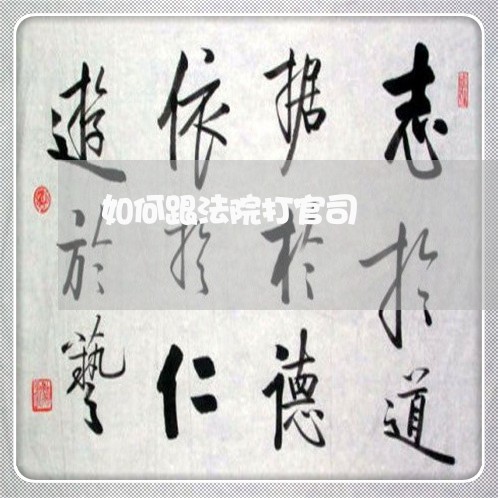 志於道
据於德
依於仁
遊於藝
如何跟法院打官司